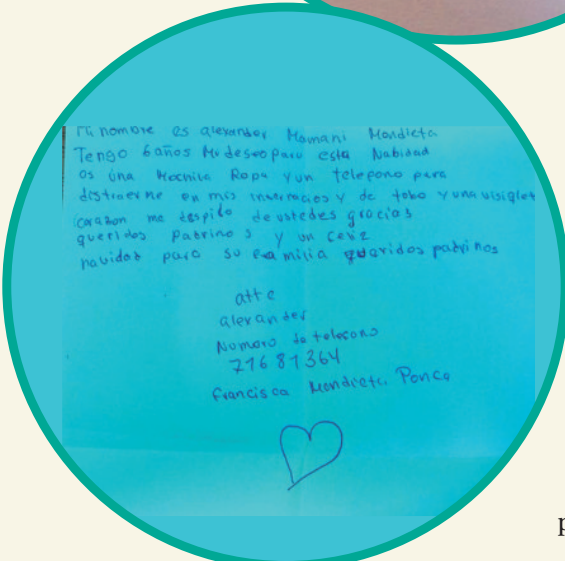 Mi nombre es alexander Mamani Mendieta
Tengo 6 años Mi deseo para esta Nabidad
es una Mochila Ropa y un telefono para
distraerme en mis y de tobo y una
corazon me despido de ustedes gracias
queridos padrinos y un
navidad para su familia queridos padrinos
att e
alexander
Nomoro de telefono
71681364
Francisca Mendieta Ponce
p